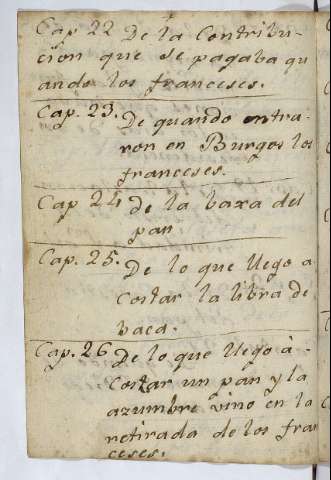 Cap 22 De la Contribu-
cion que se pagaba qu
ando los franceses.
Cap. 23. De quando entra-
ron en Burgos los
franceses.
Cap 24 de la baxa del
pan
Cap. 25. De lo que llego a
Costar la libra de
baca.
Cap. 26 De lo que llego à
Costar un pan y la
azumbre vino en la
retirada de los fran
ceses.